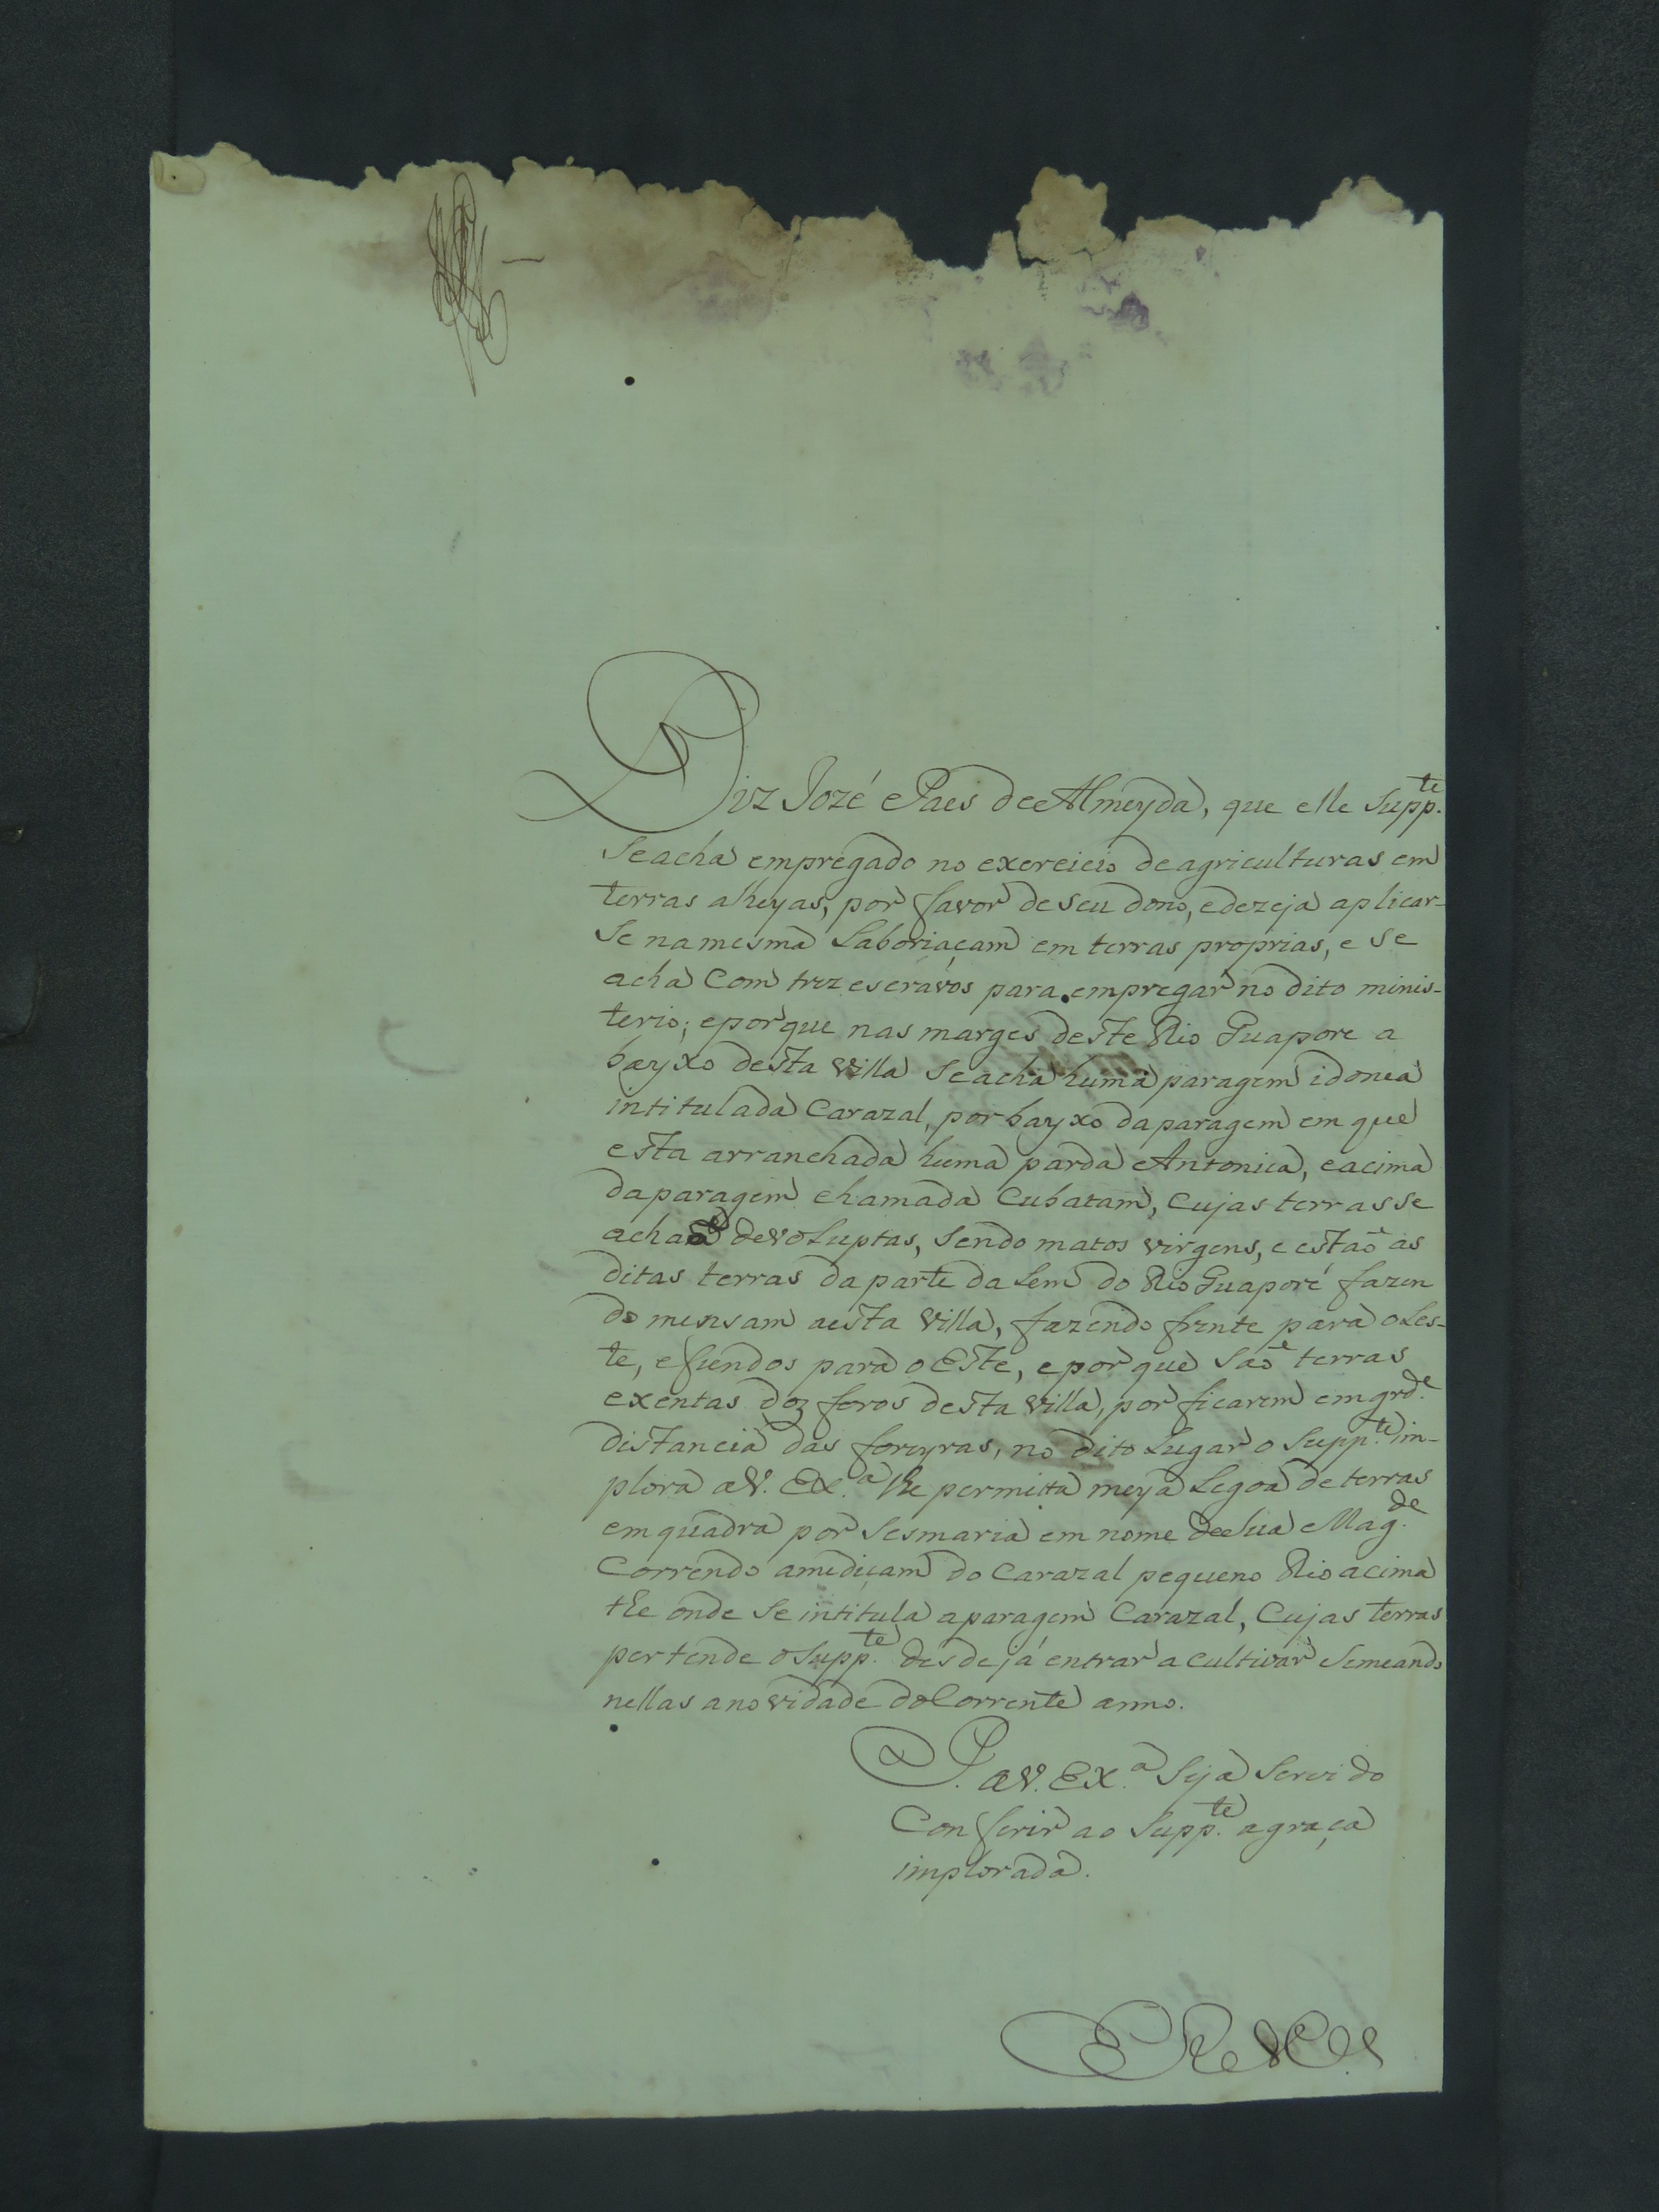 Diz Jozé Paes de Almeyda, que elle Supp.te
Seacha empregado no exercicio deagriculturas em
terras alheyas, por favor deseu dono, edezeja aplicar-
Se namesma Laboriaçam em terras proprias, e se
acha Com trez escravos para empregar no dito minis-
terio; eporque nas marges deste Rio Guapore a
bayxo desta villa Seacha huma paragem idonea
intitulada Carazal, por bayxo daparagem em que
esta arranchada huma parda Antonica, eacima
daparagem chamada Cubatam, Cujas terras se
achaõ devoluptas, Sendo matos virgens, e estaõ as
ditas terras da parte dalem do Rio Guaporé fazen
do mensam aesta villa, fazendo frente para oLes-
te, efundos para oEste, epor que Saõ terras
exentas doz foros desta villa, por ficarem em grd.e
distancia das foreyras, no dito Lugar o Supp.te im-
plora aV. Ex.a lhe permitta meya Legoa de terras
em quadra por Sesmaria em nome deSua Mag.de
Correndo amediçam do Carazal pequeno Rio acima
the onde Se intitula aparagem Carazal, Cujas terras
pertende oSupp.te desdejá entrar acultivar Semeando
nellas anovidade doCorrente anno.
P. aV. Ex.a Seja Servido
Conferir ao Supp.te agraça
implorada.
E R M.ce